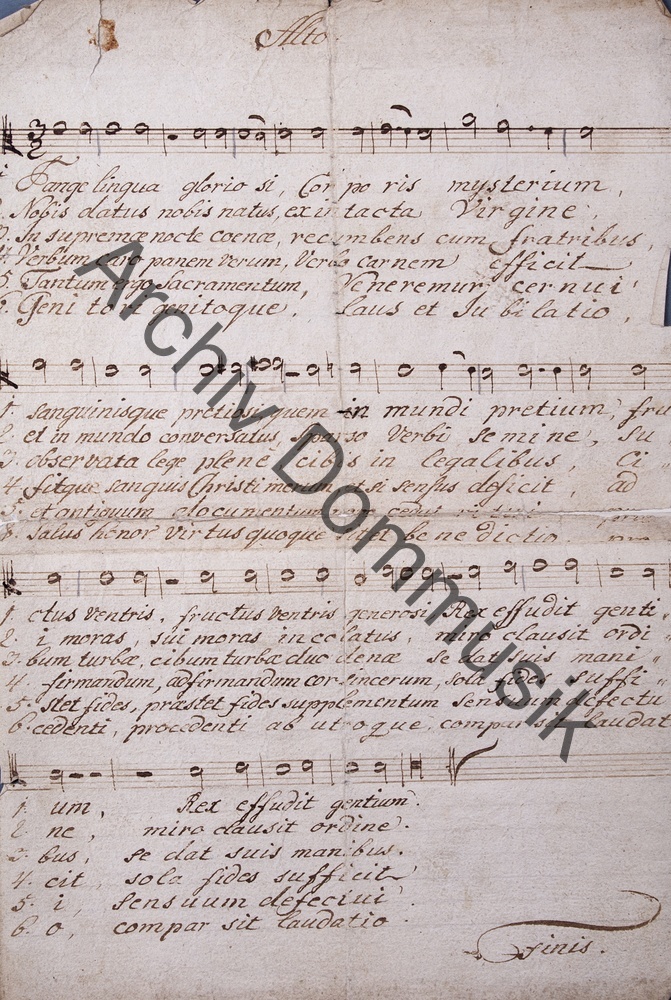 Alto
Pange lingua gloriosi, Corporis mysterium,
2. Nobis datus nobis natus, ex intacta Virgine,
3. In supremæ nocte coenæ, recumbens cum fratribus,
4. Verbum caro panem verum, Verbo carnem efficit
5. Tantum ergo Sacramentum, Veneremur cernui
6. Genitori genitoque, Laus et Jubilatio,
1. sanguinisque pretiosi, quem in mundi pretium, fru
2. et in mundo conversatus, sparso Verbi semine, Su
3. observata lege plene cibis in legalibus, Ci
4. fitque sanguis Christi merum, et si sensus deficit, ad
5. et antiquum documentum cedat
6. Salus honor virtus quoque sit et benedictio
1. ctus ventris, fructus ventris generosi, Rex effudit genti
2. i moras, sui moras incolatus, miro clausit ordi
3. bum turbæ, cibum turbæ duodenæ se dat suis mani
4. firmandum, adfirmandum cor sincerum, sola fides suffi
5. stet fides, præstet fides supplementum Sensuum defectu
6. cedenti, procedenti ab utroque, compar sit laudat
1. um, Rex effudit gentium.
2. ne, miro clausit ordine.
3. bus, se dat suis manibus.
4. cit, sola fides sufficit
5. i, sensuum defectui
6. o, compar sit laudatio
Finis.
Archiv Dommusik